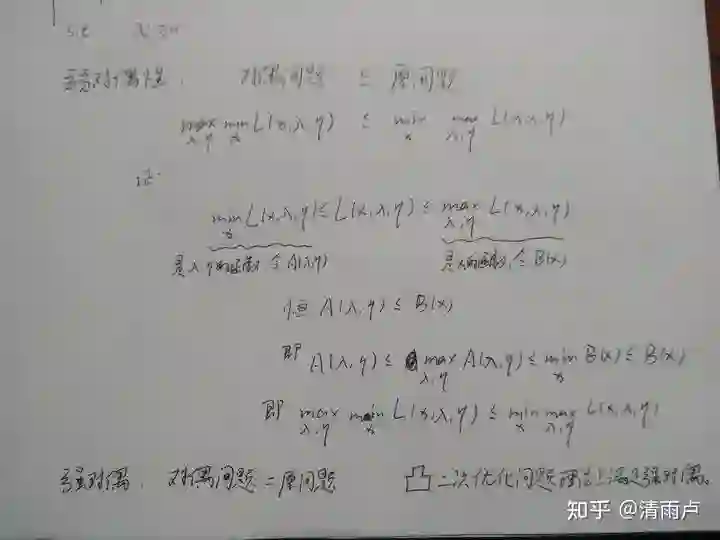 s.t. λ ≥ 0
弱对偶性: 对偶问题 ≤ 原问题
max_{λ,η} min_x L(x,λ,η) ≤ min_x max_{λ,η} L(x,λ,η)
证:
min_x L(x,λ,η) ≤ L(x,λ,η) ≤ max_{λ,η} L(x,λ,η)
是λ η的函数 令A(λ,η) 是x的函数, 令B(x)
恒 A(λ,η) ≤ B(x)
即 A(λ,η) ≤ max_{λ,η} A(λ,η) ≤ min_x B(x) ≤ B(x)
即 max_{λ,η} min_x L(x,λ,η) ≤ min_x max_{λ,η} L(x,λ,η)
强对偶: 对偶问题 = 原问题 凸二次优化问题 上满足强对偶。
知乎 @清雨卢